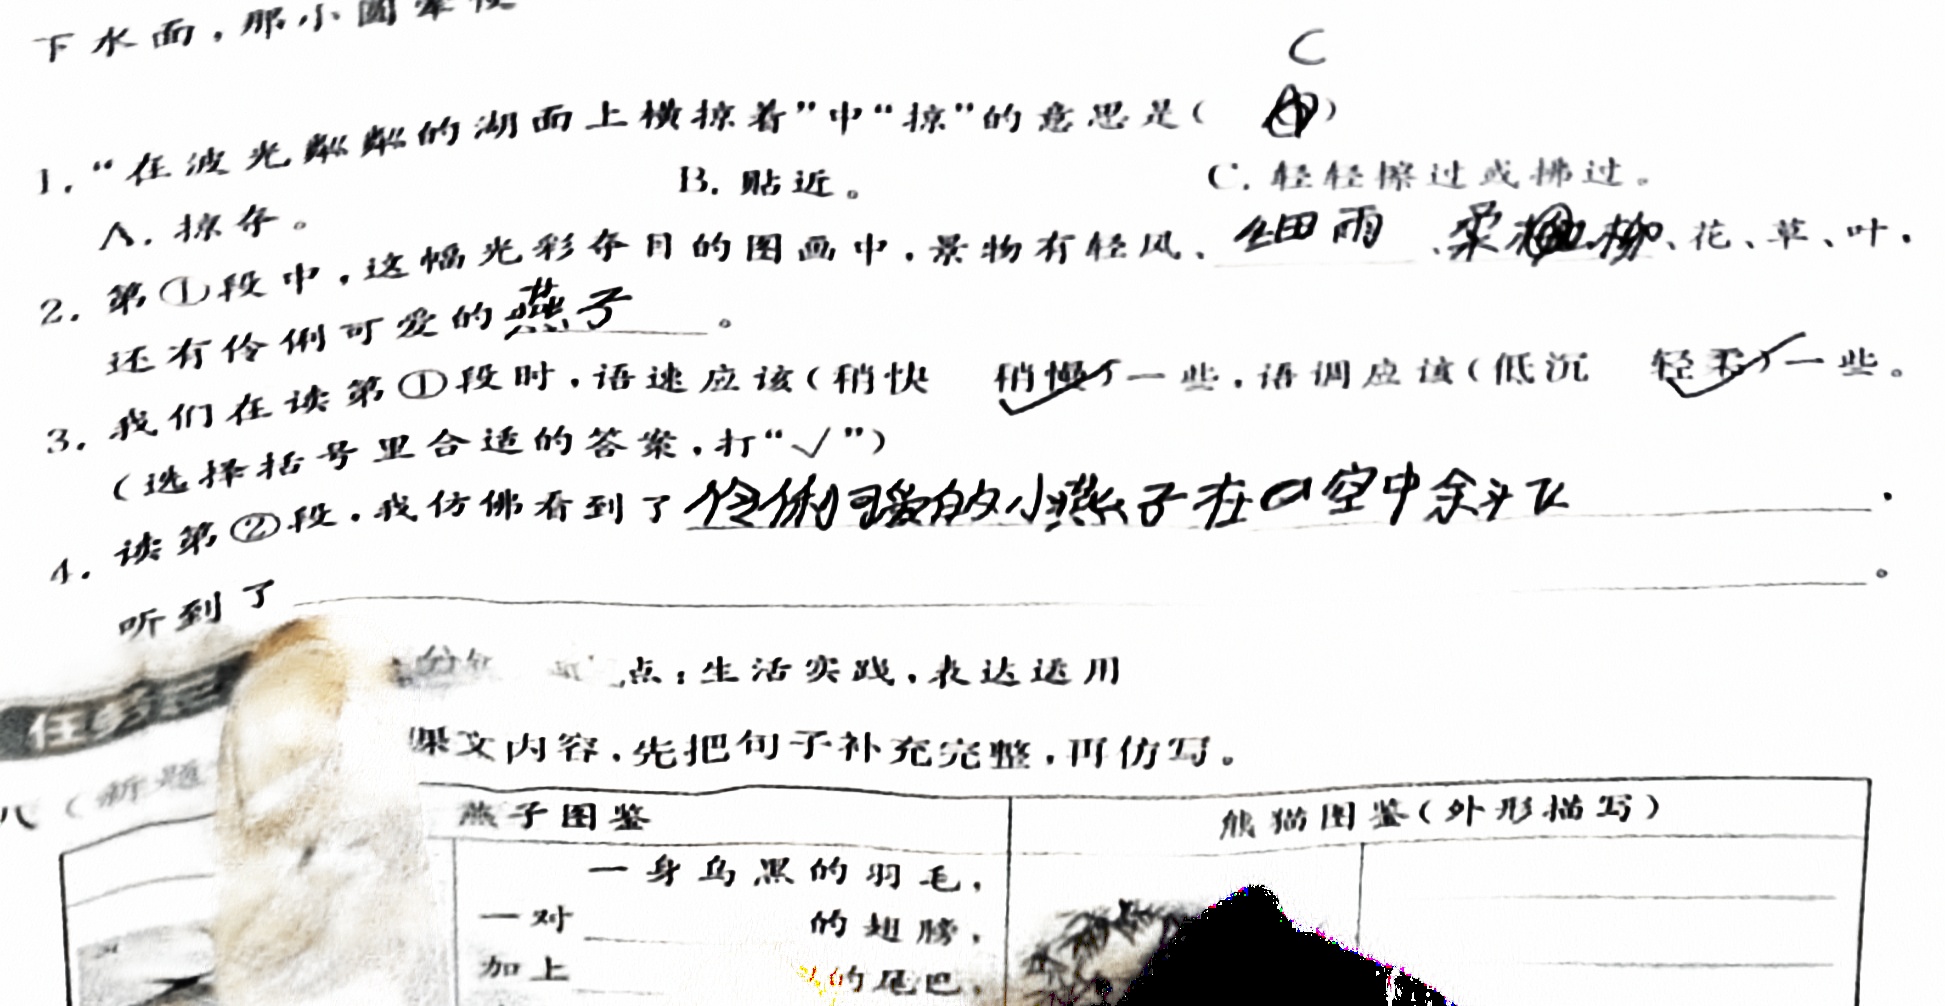 下水面，那小圆晕便
1. “在波光粼粼的湖面上横掠着”中“掠”的意思是（ C ）
A. 掠夺。 B. 贴近。 C. 轻轻擦过或拂过。
2. 第①段中，这幅光彩夺目的图画中，景物有轻风、细雨、柔柳、花、草、叶，
还有伶俐可爱的燕子。
3. 我们在读第①段时，语速应该（稍快 稍慢√）一些，语调应该（低沉 轻柔√）一些。
（选择括号里合适的答案，打“√”）
4. 读第②段，我仿佛看到了伶俐可爱的小燕子在空中，
听到了。
点：生活实践，表达运用
八（新题
课文内容，先把句子补充完整，再仿写。
燕子图鉴 熊猫图鉴（外形描写）
一身乌黑的羽毛，
一对 的翅膀，
加上 的尾巴，